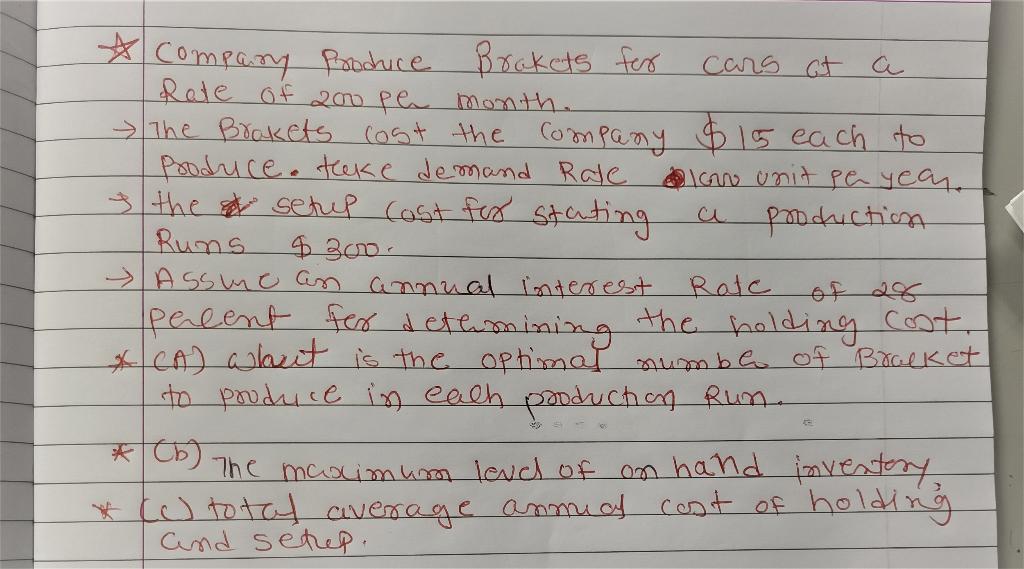 ☆ Company Produce Brakets for cars at a
Rate of 200 per month.
→ The Brakets cost the company $15 each to
Produce. take demand Rate unit per year.
→ the setup cost for stating a production
Runs $300.
→ Assume an annual interest Rate of 28
percent for determining the holding cost.
* (A) what is the optimal number of Bracket
to produce in each production Run.
* (b) The maximum level of on hand inventory
* (c) total average annual cost of holding
and setup.